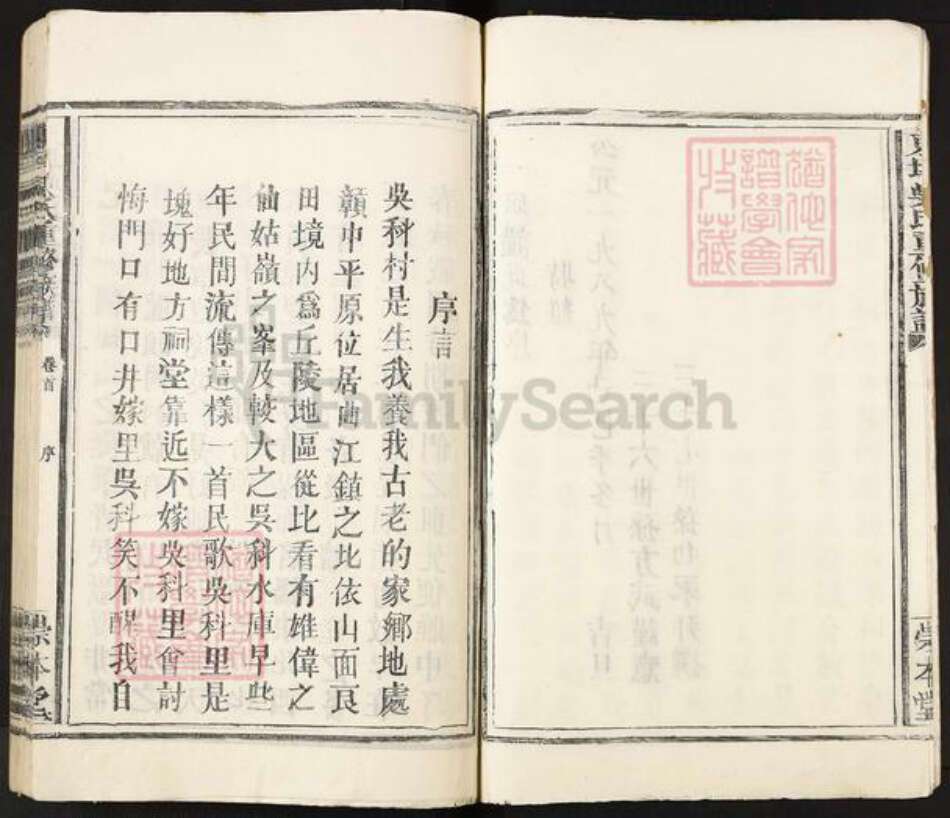 序言
吳科村是生我養我古老的家鄉地處
贛中平原位居曲江鎮之北依山面良
田境内為丘陵地區從比看有雄偉之
仙姑嶺之峯及較大之吳科水庫早些
年民間流傳這樣一首民歌吳科里是
塊好地方祠堂靠近不嫁吳科里會討
悔門口有口井嫁里吳科笑不醒我自
卷首
序
崇本堂
吳氏重修族譜
崇本堂
譜學會
收藏
FamilySearch